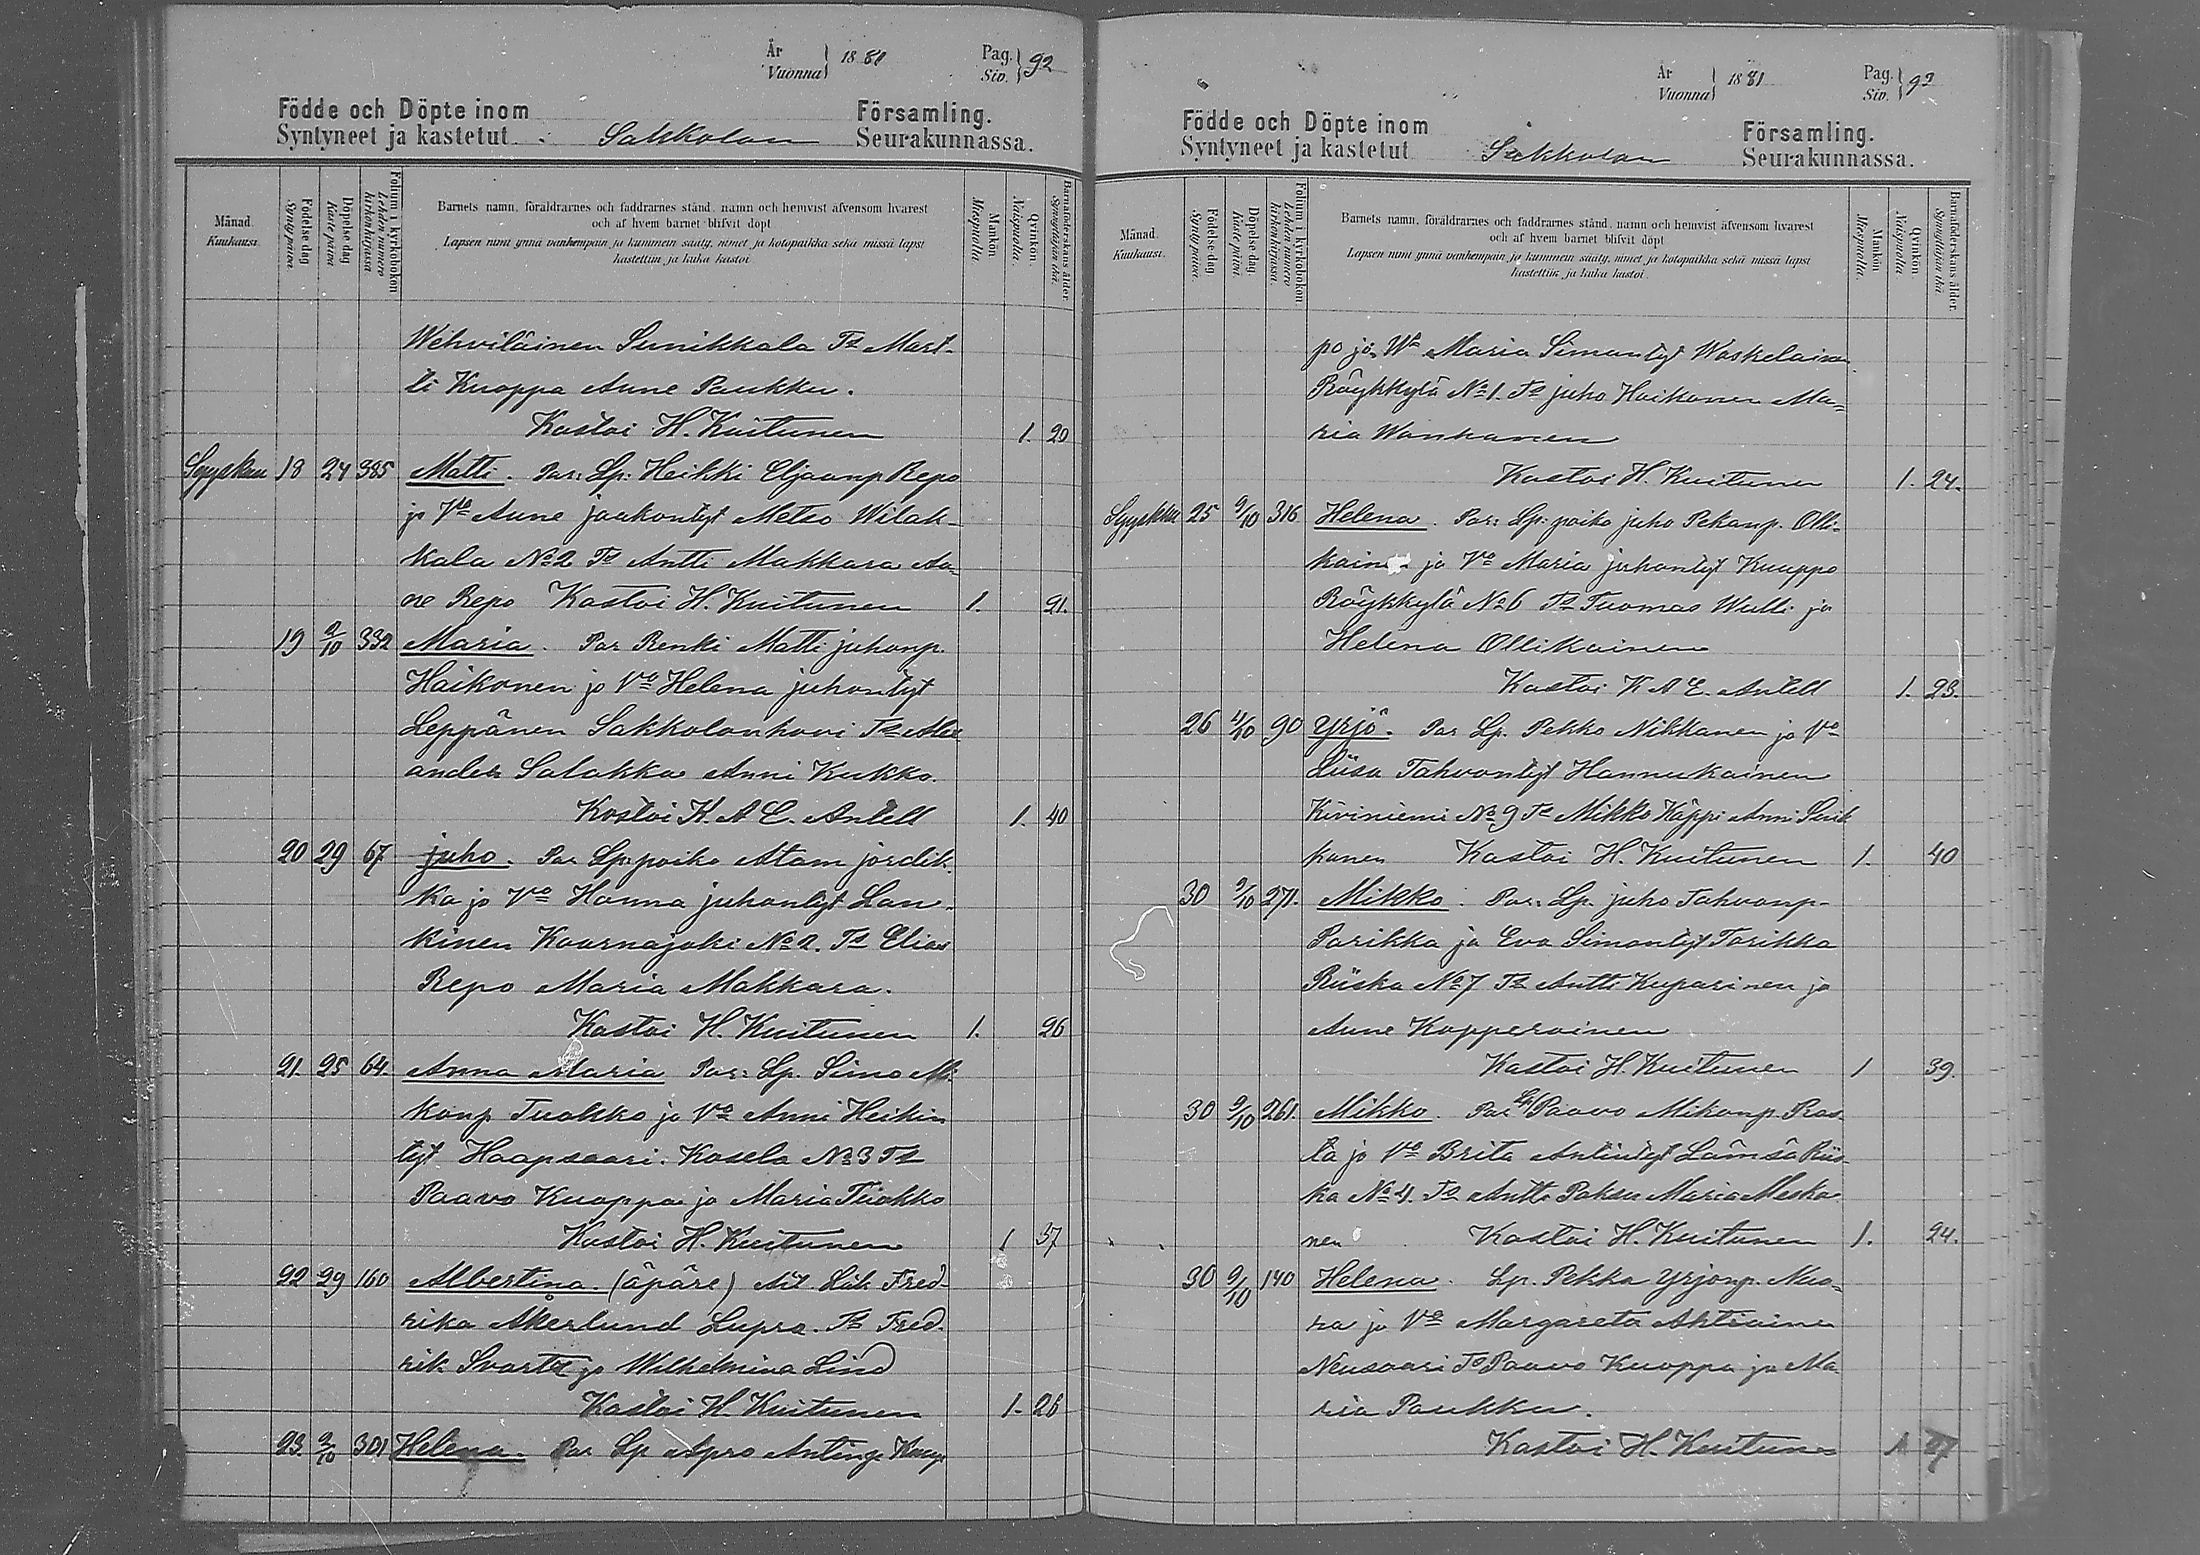 År
Vuonna } 1881 Pag.
Siv. } 92
Födde och Döpte inom Församling.
Syntyneet ja kastetut Sakkolan Seurakunnassa.
Månad. Kuukausi.
Födelse dag Synty päivä
Döpelse dag Kaste päivä
Folium i kyrkoboken Lehden numero kirkonkirjassa
Barnets namn, föräldrarnes och faddrarnes stånd, namn och hemvist äfvensom hvarest
och af hvem barnet blifvit döpt
Lapsen nimi ynnä vanhempain ja kummein sääty, nimet ja kotopaikka sekä missä lapsi
kastettiin ja kuka kastoi
Mankön Miespuolia.
Qvinkön Naispuolia.
Barnaföderskans ålder Synnyttäjän ikä.
Wehviläinen Sunikkala Ts Mart-
ti Kuoppa Anne Paukku.
Kastoi H. Kuitunen 1. 20
Syyskuu 18 24 385 Matti. Par: Lp: Heikki Eljaanp Repo
ja Vo Anne Jaakontyt Metso Wilak-
kala No 2 Ts Antti Makkara An-
ne Repo Kastoi H. Kuitunen 1. 21.
19 2/10 332 Maria. Par Renki Matti juhonp.
Haikonen ja Vo Helena juhontyt
Leppänen Sakkolanhovi Ts Alex
ander Salakka Anni Kukko.
Kastoi K. A E. Antell 1. 40
20 29 67 juho. Par Lp: poika Atam jordik-
ka ja Vo Hanna juhontyt Lan-
kinen Kaarnajoki No 2. Ts Elias
Repo Maria Makkara.
Kastoi H. Kuitunen 1. 26
21. 25 64. Anna Maria Par: Lp. Simo Mi-
konp Tuokko ja Vo Anni Heikin
tyt Haapsaari. Kasela No 3 Ts
Paavo Kuoppa ja Maria Tuokko
Kastoi H. Kuitunen 1 37
22 29 160 Albertina. (äpäre) Äit Fred-
rika Åkerlund Lupra. Ts Fred-
rik ja Wilhelmina Lind
Kastoi H. Kuitunen 1. 26
23. 2/10 301 Helena. Par Lp Apro Antinp Kuup
År
Vuonna } 1881 Pag.
Siv. } 93
Födde och Döpte inom Församling.
Syntyneet ja kastetut Sakkolan Seurakunnassa.
Månad. Kuukausi.
Födelse dag Synty päivä.
Döpelse dag Kaste päivä.
Folium i kyrkoboken Lehden numero kirkonkirjassa.
Barnets namn, föräldrarnes och faddrarnes stånd, namn och hemvist äfvensom hvarest
och af hvem barnet blifvit döpt
Lapsen nimi ynnä vanhempain ja kummein sääty, nimet ja kotopaikka sekä missä lapsi
kastettiin ja kuka kastoi.
Mankön Miespuolia.
Qvinkön Naispuolia.
Barnaföderskans ålder. Synnyttäjän ikä.
po ja Wo Maria Simontyt Waskelainen
Röykkylä No 1. Ts juho Haikonen Ma-
ria Wanhanen
Kastoi H. Kuitunen 1. 24.
Syyskuu 25 9/10 316 Helena. Par: Lp: poika juho Pekanp. Olli-
kainen ja Vo Maria juhontyt Kuuppo
Röykkylä No 6 Ts Tuomas Wulli ja
Helena Ollikainen
Kastoi K A E. Antell 1. 23.
26 4/10 90 Yrjö. Par Lp. Pekko Nikkanen ja Vo
Liisa Tahvontyt Hannukainen
Kiviniemi No 9 Ts Mikko Käppi Anni
kanen Kastoi H. Kuitunen 1. 40
30 9/10 271. Mikko. Par: Lp. juho Tahvonp.
Parikka ja Eva Simontyt Torikka
Riiska No 7 Ts Antti Kuparinen ja
Anne Kopperoinen
Kastoi H. Kuitunen 1 39.
30 9/10 261. Mikko. Par Lp Paavo Mikonp. Ras-
ta ja Vo Brita Antintyt Lämsä Riis-
ka No 4. Ts Antti Paksu Maria Meska-
nen Kastoi H. Kuitunen 1. 24.
30 9/10 140 Helena. Lp. Pekka Yrjonp. Nuo-
ra ja Vo Margareta Ahtiainen
Neusaari Ts Paavo Kuoppa ja Ma-
ria Paukku.
Kastoi H. Kuitunen 1 27